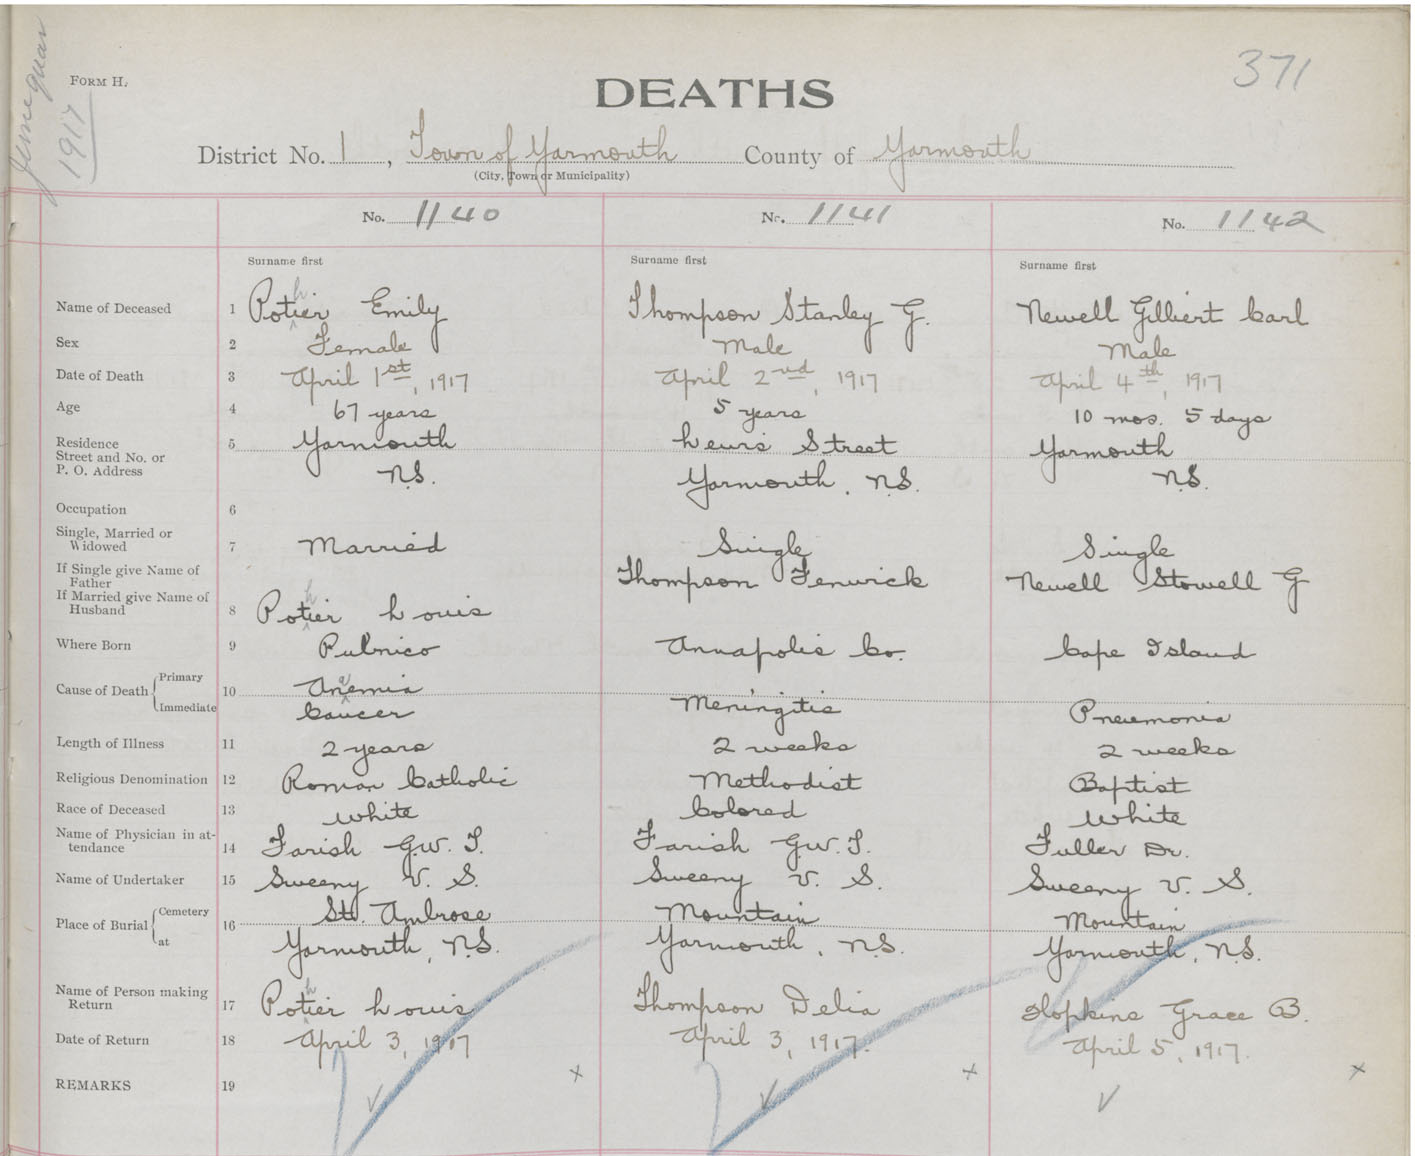 1917
FORM H.
371
DEATHS
District No. 1, Town of Yarmouth County of Yarmouth
(City, Town or Municipality)
No. 1140 No. 1141 No. 1142
Surname first Surname first Surname first
Name of Deceased 1 Pothier Emily Thompson Stanley G. Newell Gilbert Carl
Sex 2 Female Male Male
Date of Death 3 April 1st, 1917 April 2nd, 1917 April 4th, 1917
Age 4 67 years 5 years 10 mos. 5 days
Residence 5 Yarmouth Lewis Street Yarmouth
Street and No. or
P. O. Address N.S. Yarmouth, N.S. N.S.
Occupation 6
Single, Married or
Widowed 7 Married Single Single
If Single give Name of
Father Thompson Fenwick Newell Stowell G
If Married give Name of
Husband 8 Pothier Louis
Where Born 9 Pubnico Annapolis Co. Cape Island
Cause of Death Primary 10 Anaemia
Immediate Cancer Meningitis Pneumonia
Length of Illness 11 2 years 2 weeks 2 weeks
Religious Denomination 12 Roman Catholic Methodist Baptist
Race of Deceased 13 White Colored White
Name of Physician in at-
tendance 14 Farish G.W.T. Farish G.W.T. Fuller Dr.
Name of Undertaker 15 Sweeny V. S. Sweeny V. S. Sweeny V. S.
Place of Burial Cemetery 16 St. Ambrose Mountain Mountain
at Yarmouth, N.S. Yarmouth, N.S. Yarmouth, N.S.
Name of Person making
Return 17 Pothier Louis Thompson Delia Hopkins Grace B.
Date of Return 18 April 3, 1917 April 3, 1917. April 5, 1917.
REMARKS 19